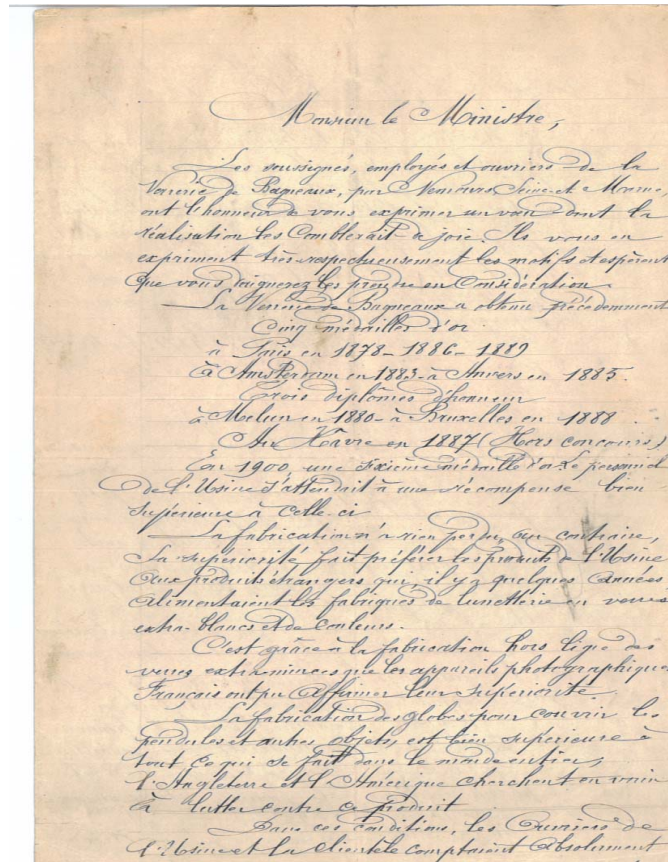 Monsieur le Ministre,
Les soussignés, employés et ouvriers de la
Verrerie de Bagneaux, par Nemours, Seine et Marne
ont l'honneur de vous exprimer un vœu dont la
réalisation les Comblerait de joie. Ils vous en
expriment très-respectueusement les motifs et espèrent
que vous daignerez les prendre en Considération.
La Verrerie de Bagneaux a obtenu précédemment
Cinq médailles d'or
à Paris en 1878 - 1886 - 1889
à Amsterdam en 1883 - à Anvers en 1885.
Trois diplômes d'honneur
à Melun en 1880 - à Bruxelles en 1888
Au Hâvre en 1887 (Hors concours)
En 1900, une sixième médaille d'or. Le personnel
de l'Usine s'attendait à une récompense bien
supérieure à celle-ci
La fabrication n'a rien perdu, au contraire,
sa supériorité fait préférer les produits de l'Usine
aux produits étrangers qui, il y a quelques années
alimentaient les fabriques de lunetterie en verres
extra-blancs et de couleurs.
C'est grâce à la fabrication hors ligne des
verres extra-minces que les appareils photographiques
Français ont pu affirmer leur supériorité
La fabrication des globes pour couvrir les
pendules et autres objets, est bien supérieure à
tout ce qui se fait dans le monde entier,
l'Angleterre et l'Amérique cherchent en vain
à lutter contre ce produit
Dans ces conditions, les Ouvriers de
l'Usine et la clientèle comptaient absolument